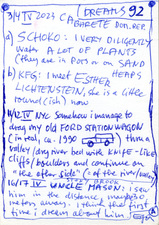 DREAMS 92
3/4 IV 2023 CABARETE DOM. REP.
a) SCHOKO: I VERY DILIGENTLY
WATER A LOT OF PLANTS
(they are in POTS or on SAND
HEAPS
b) KFG: I meet ESTHER
LICHTENSTEIN, she is a little
round(ish) now
NYC Somehow i manage to
drag my old FORD STATION WAGON
(intact, ca. 1990) thru a
valley/dry river bed with KNIFE-like
cliffs/boulders and continue on
"the other side" (of the river/valley)
UNCLE MASON: i saw
him in the distance,
meters away. i think the first
time i dream about him